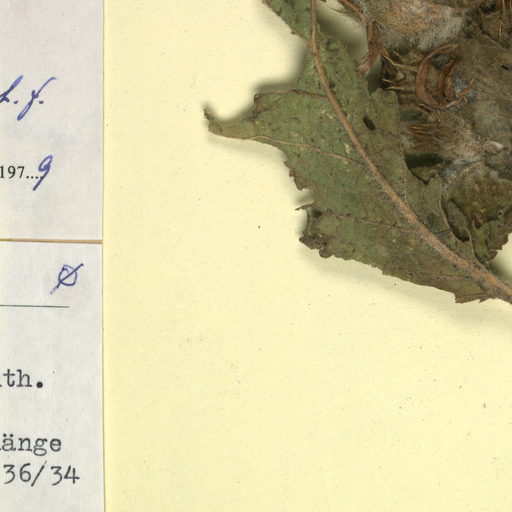 L. f.
197...9
ø
th.
änge
36/34